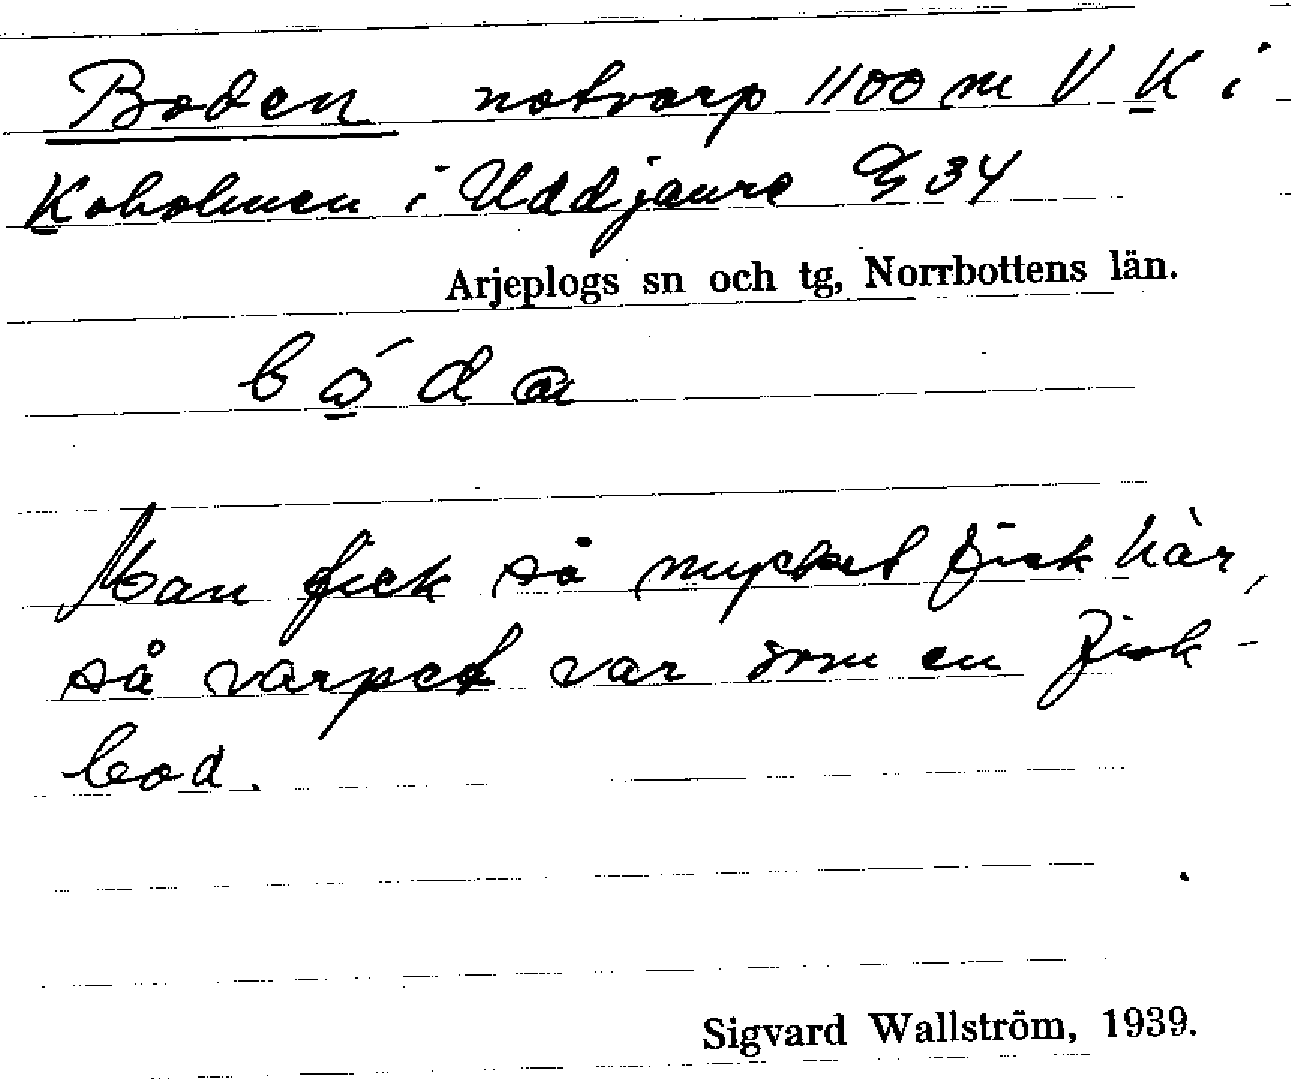 Boden notvarp 1100 m V K i
Koholmen i Uddjaure 34
Arjeplogs sn och tg, Norrbottens län.
Man fick så mycket fisk här,
så varpet var som en fisk-
bod.
Sigvard Wallström, 1939.